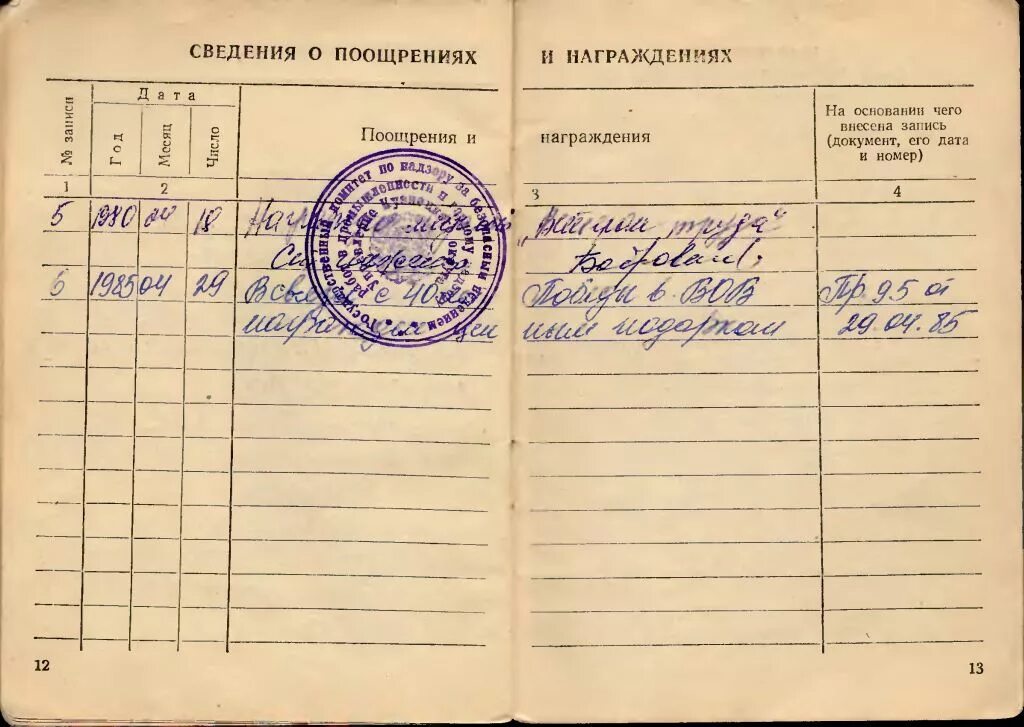 СВЕДЕНИЯ О ПООЩРЕНИЯХ И НАГРАЖДЕНИЯХ
№ записи
Дата
Год
Месяц
Число
Поощрения и награждения
На основании чего
внесена запись
(документ, его дата
и номер)
1 2 3 4
5 1980 18 "Ветеран труда"
6 1985 04 29 В с 40 Победы в ВОВ Пр 95 от
ным подарком 29.04.85
Государственный комитет по надзору за безопасным ведением
работ в промышленности и горному надзору
Управление Кузнецкого округа
12
13